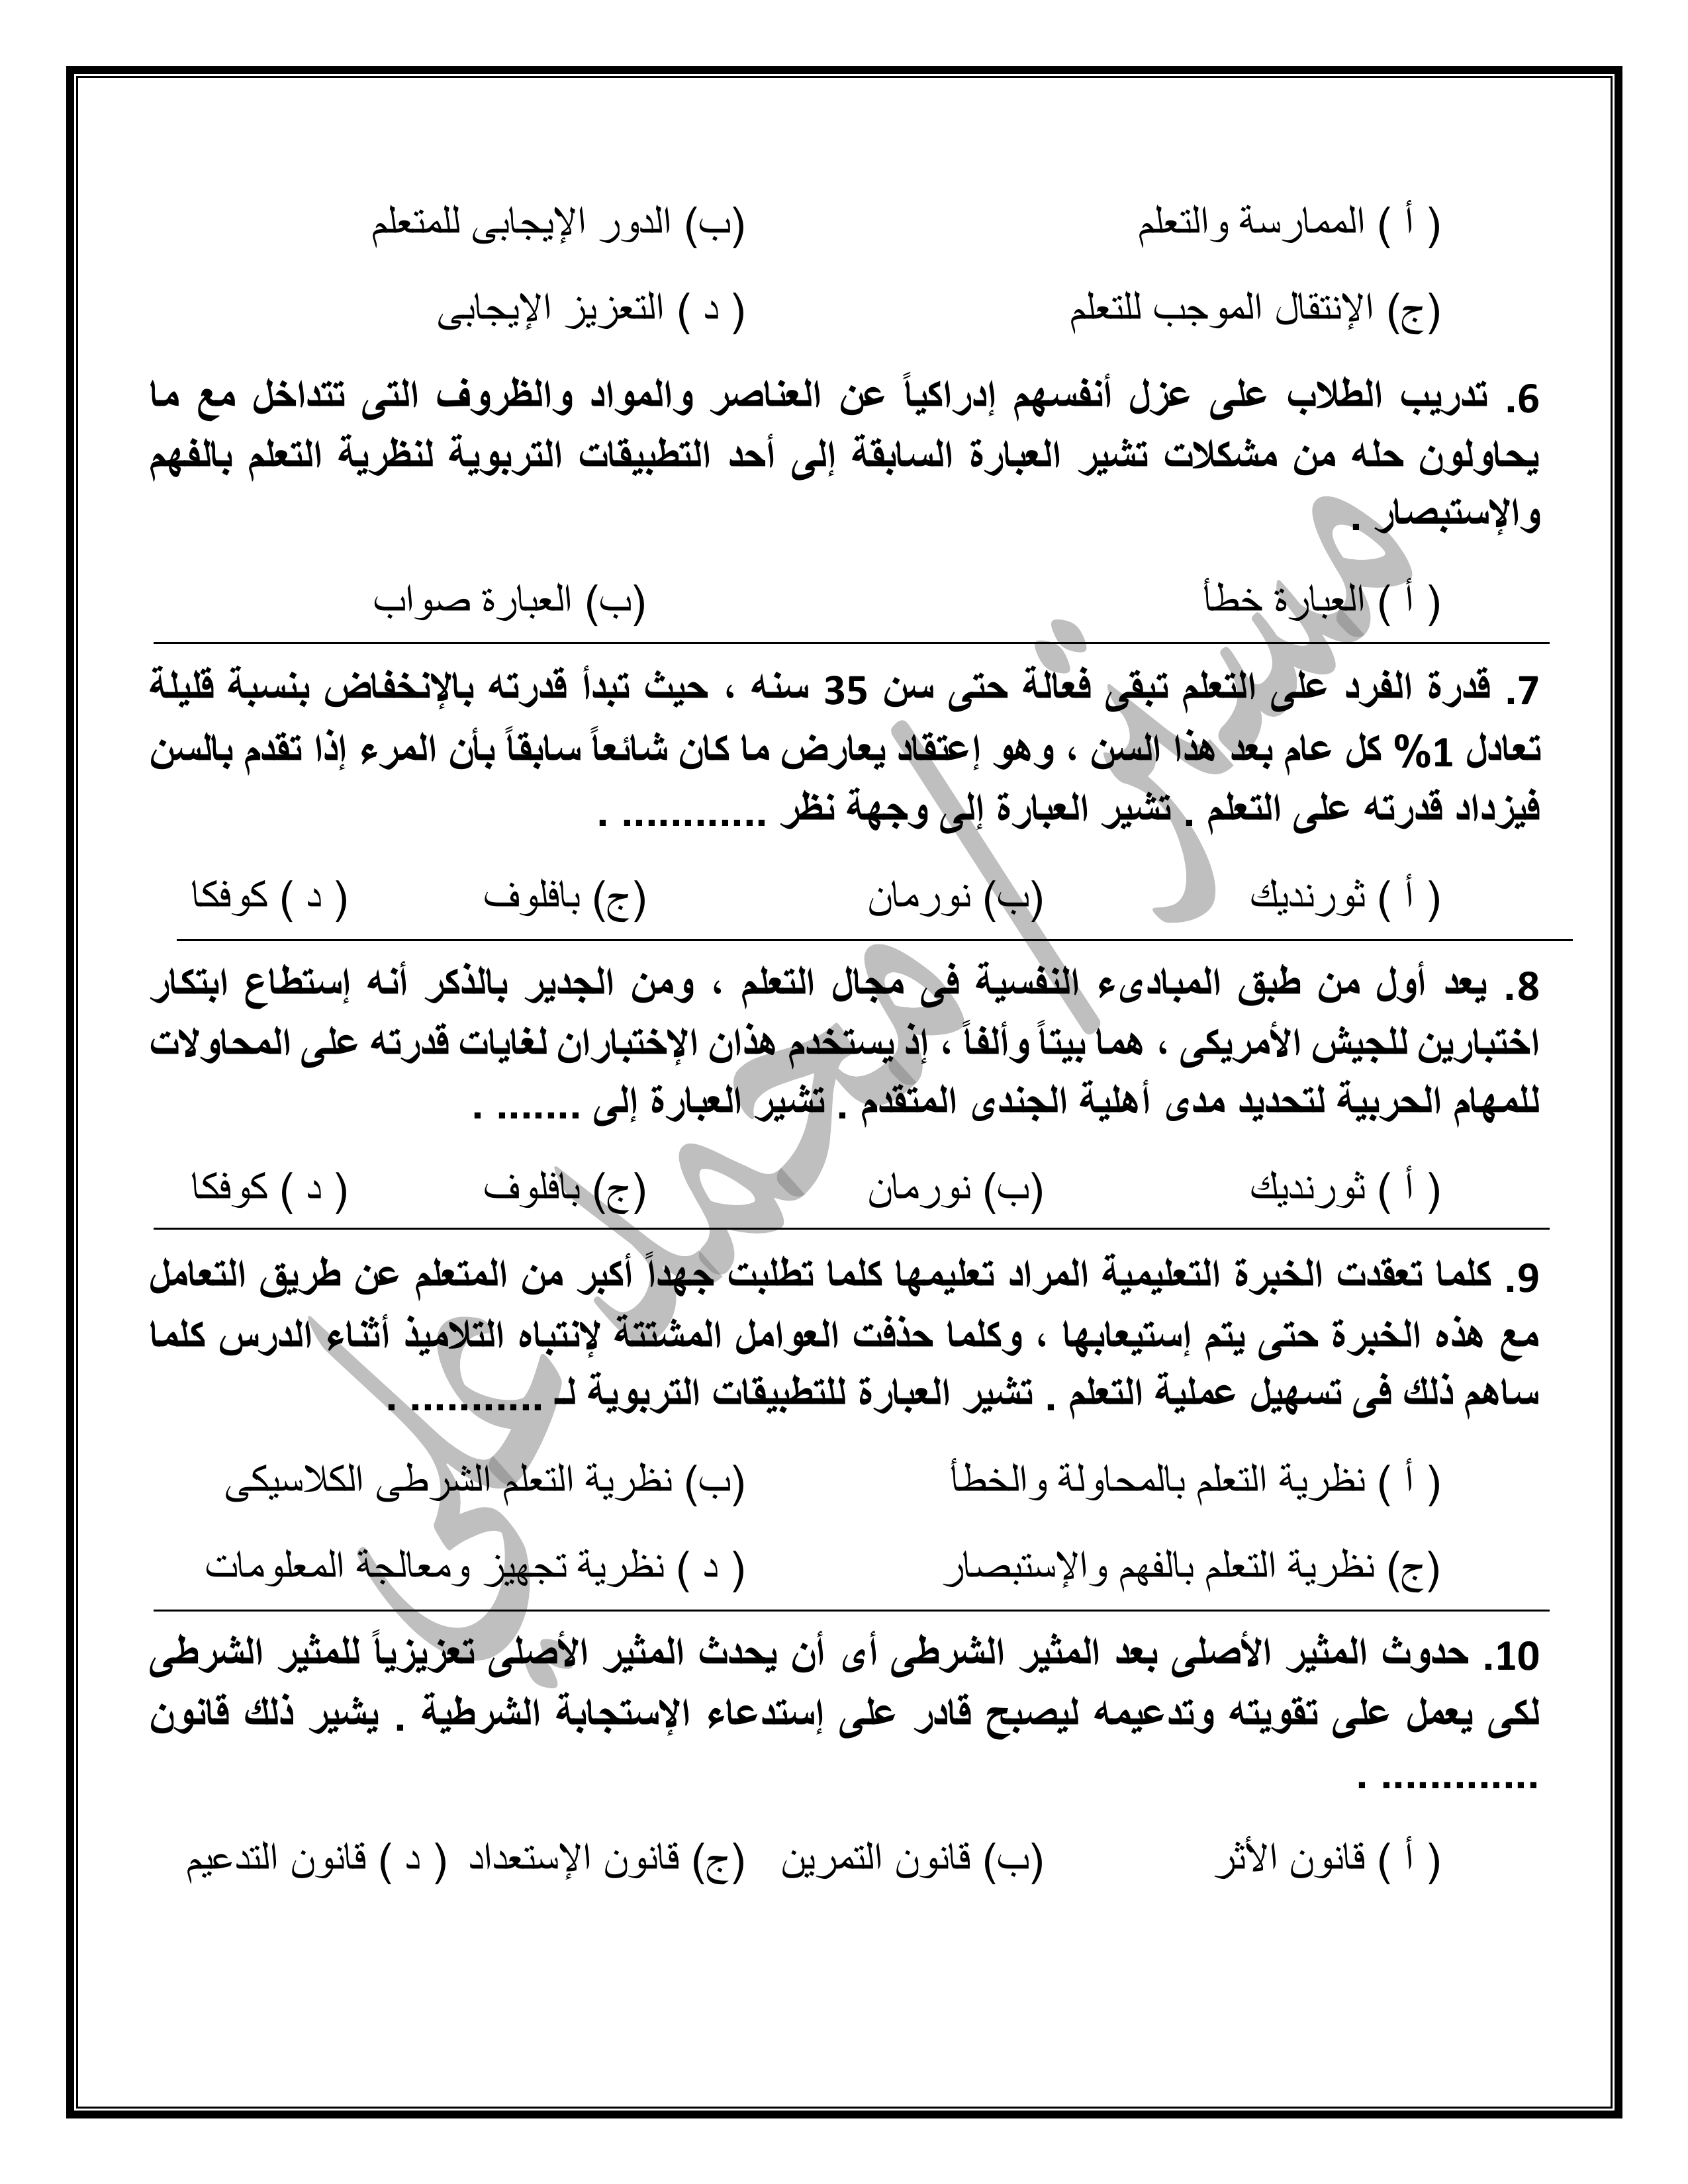 ( أ ) الممارسة والتعلم (ب) الدور الإيجابى للمتعلم
(ج) الإنتقال الموجب للتعلم ( د ) التعزيز الإيجابى
6. تدريب الطلاب على عزل أنفسهم إدراكياً عن العناصر والمواد والظروف التى تتداخل مع ما
يحاولون حله من مشكلات تشير العبارة السابقة إلى أحد التطبيقات التربوية لنظرية التعلم بالفهم
والإستبصار .
( أ ) العبارة خطأ (ب) العبارة صواب
7. قدرة الفرد على التعلم تبقى فعالة حتى سن 35 سنه ، حيث تبدأ قدرته بالإنخفاض بنسبة قليلة
تعادل 1% كل عام بعد هذا السن ، وهو إعتقاد يعارض ما كان شائعاً سابقاً بأن المرء إذا تقدم بالسن
فيزداد قدرته على التعلم . تشير العبارة إلى وجهة نظر ............ .
( أ ) ثورنديك (ب) نورمان (ج) بافلوف ( د ) كوفكا
8. يعد أول من طبق المبادىء النفسية فى مجال التعلم ، ومن الجدير بالذكر أنه إستطاع ابتكار
اختبارين للجيش الأمريكى ، هما بيتاً وألفاً ، إذ يستخدم هذان الإختباران لغايات قدرته على المحاولات
للمهام الحربية لتحديد مدى أهلية الجندى المتقدم . تشير العبارة إلى ....... .
( أ ) ثورنديك (ب) نورمان (ج) بافلوف ( د ) كوفكا
9. كلما تعقدت الخبرة التعليمية المراد تعليمها كلما تطلبت جهداً أكبر من المتعلم عن طريق التعامل
مع هذه الخبرة حتى يتم إستيعابها ، وكلما حذفت العوامل المشتتة لإنتباه التلاميذ أثناء الدرس كلما
ساهم ذلك فى تسهيل عملية التعلم . تشير العبارة للتطبيقات التربوية لـ ........... .
( أ ) نظرية التعلم بالمحاولة والخطأ (ب) نظرية التعلم الشرطى الكلاسيكى
(ج) نظرية التعلم بالفهم والإستبصار ( د ) نظرية تجهيز ومعالجة المعلومات
10. حدوث المثير الأصلى بعد المثير الشرطى أى أن يحدث المثير الأصلى تعزيزياً للمثير الشرطى
لكى يعمل على تقويته وتدعيمه ليصبح قادر على إستدعاء الإستجابة الشرطية . يشير ذلك قانون
............. .
( أ ) قانون الأثر (ب) قانون التمرين (ج) قانون الإستعداد ( د ) قانون التدعيم
مستر/ محمد علي